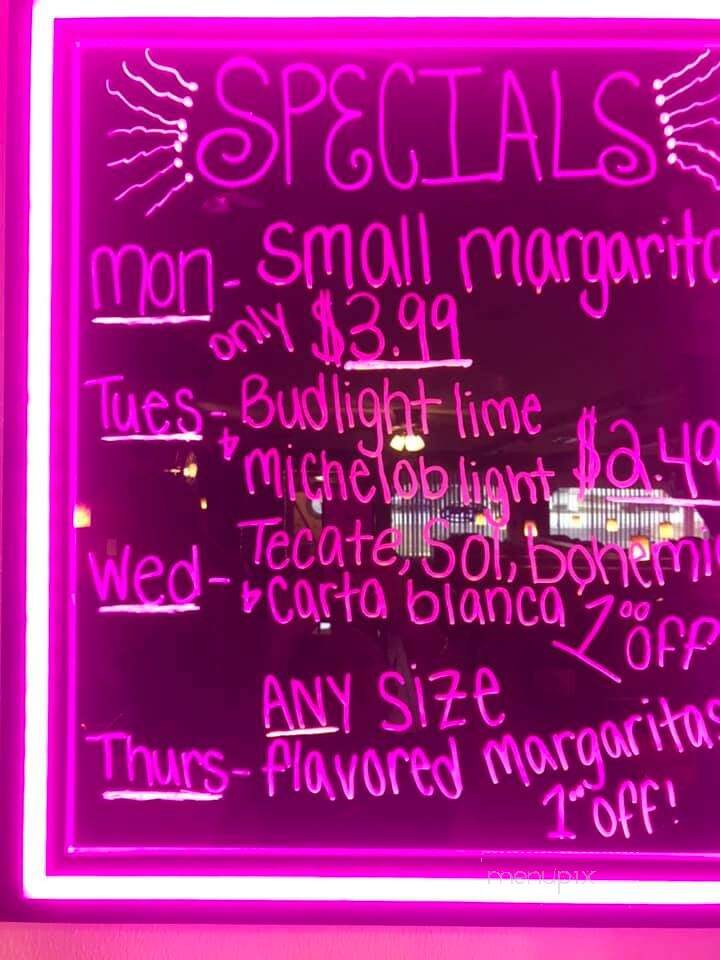 SPECIALS
Mon - Small margarita
only $3.99
Tues - Budlight lime
+ Michelob light $2.49
Wed - Tecate, Sol, bohemi
+ Carta blanca 1⁰⁰ OFF
ANY SiZE
Thurs - flavored margaritas
1⁰⁰ OFF!
menupix